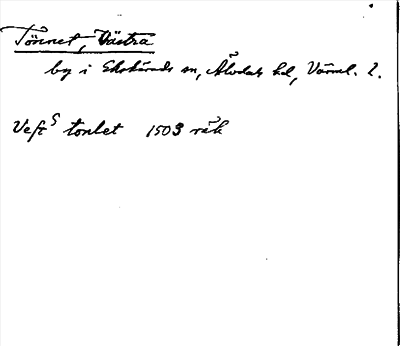 Tönnet, Västra
by i Ekshärads sn, Älvdals hd, Värml. l.
Veft tonlet 1503 räk